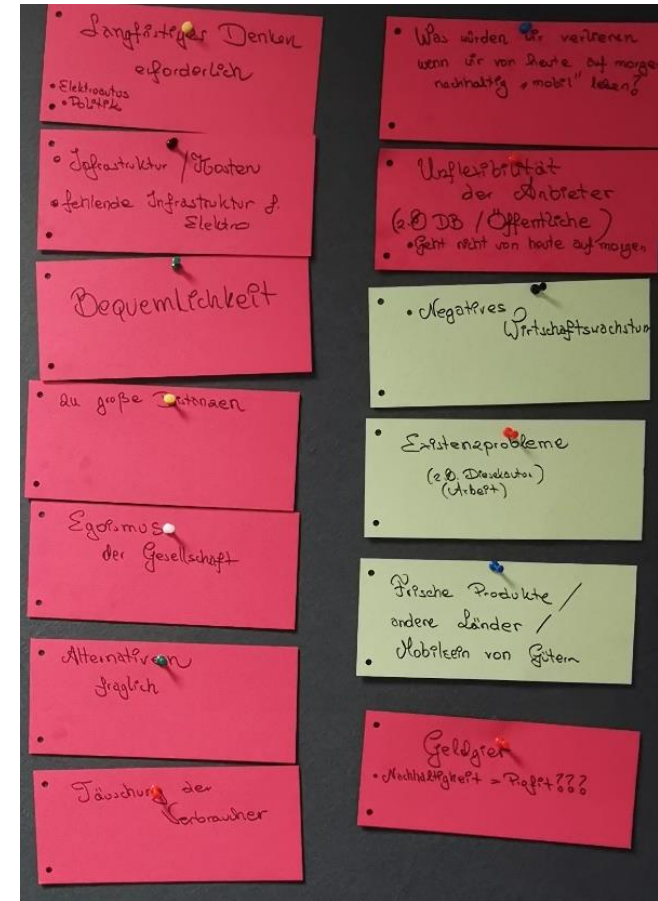 Langfristiges Denken
erforderlich
• Elektroautos
• Politik
• Infrastruktur / Kosten
• fehlende Infrastruktur f.
Elektro
Bequemlichkeit
zu große Distanzen
Egoismus
der Gesellschaft
Alternativen
fraglich
Täuschung der
Verbraucher
Was würden wir verlieren
wenn wir von heute auf morgen
nachhaltig "mobil" leben?
Unflexibilität
der Anbieter
(z.B DB / Öffentliche)
• Geht nicht von heute auf morgen
• Negatives
Wirtschaftswachstum
Existenzprobleme
(z.B. Dieselautos)
(Arbeit)
Frische Produkte /
andere Länder /
Mobilsein von Gütern
Geldgier
• Nachhaltigkeit = Profit???